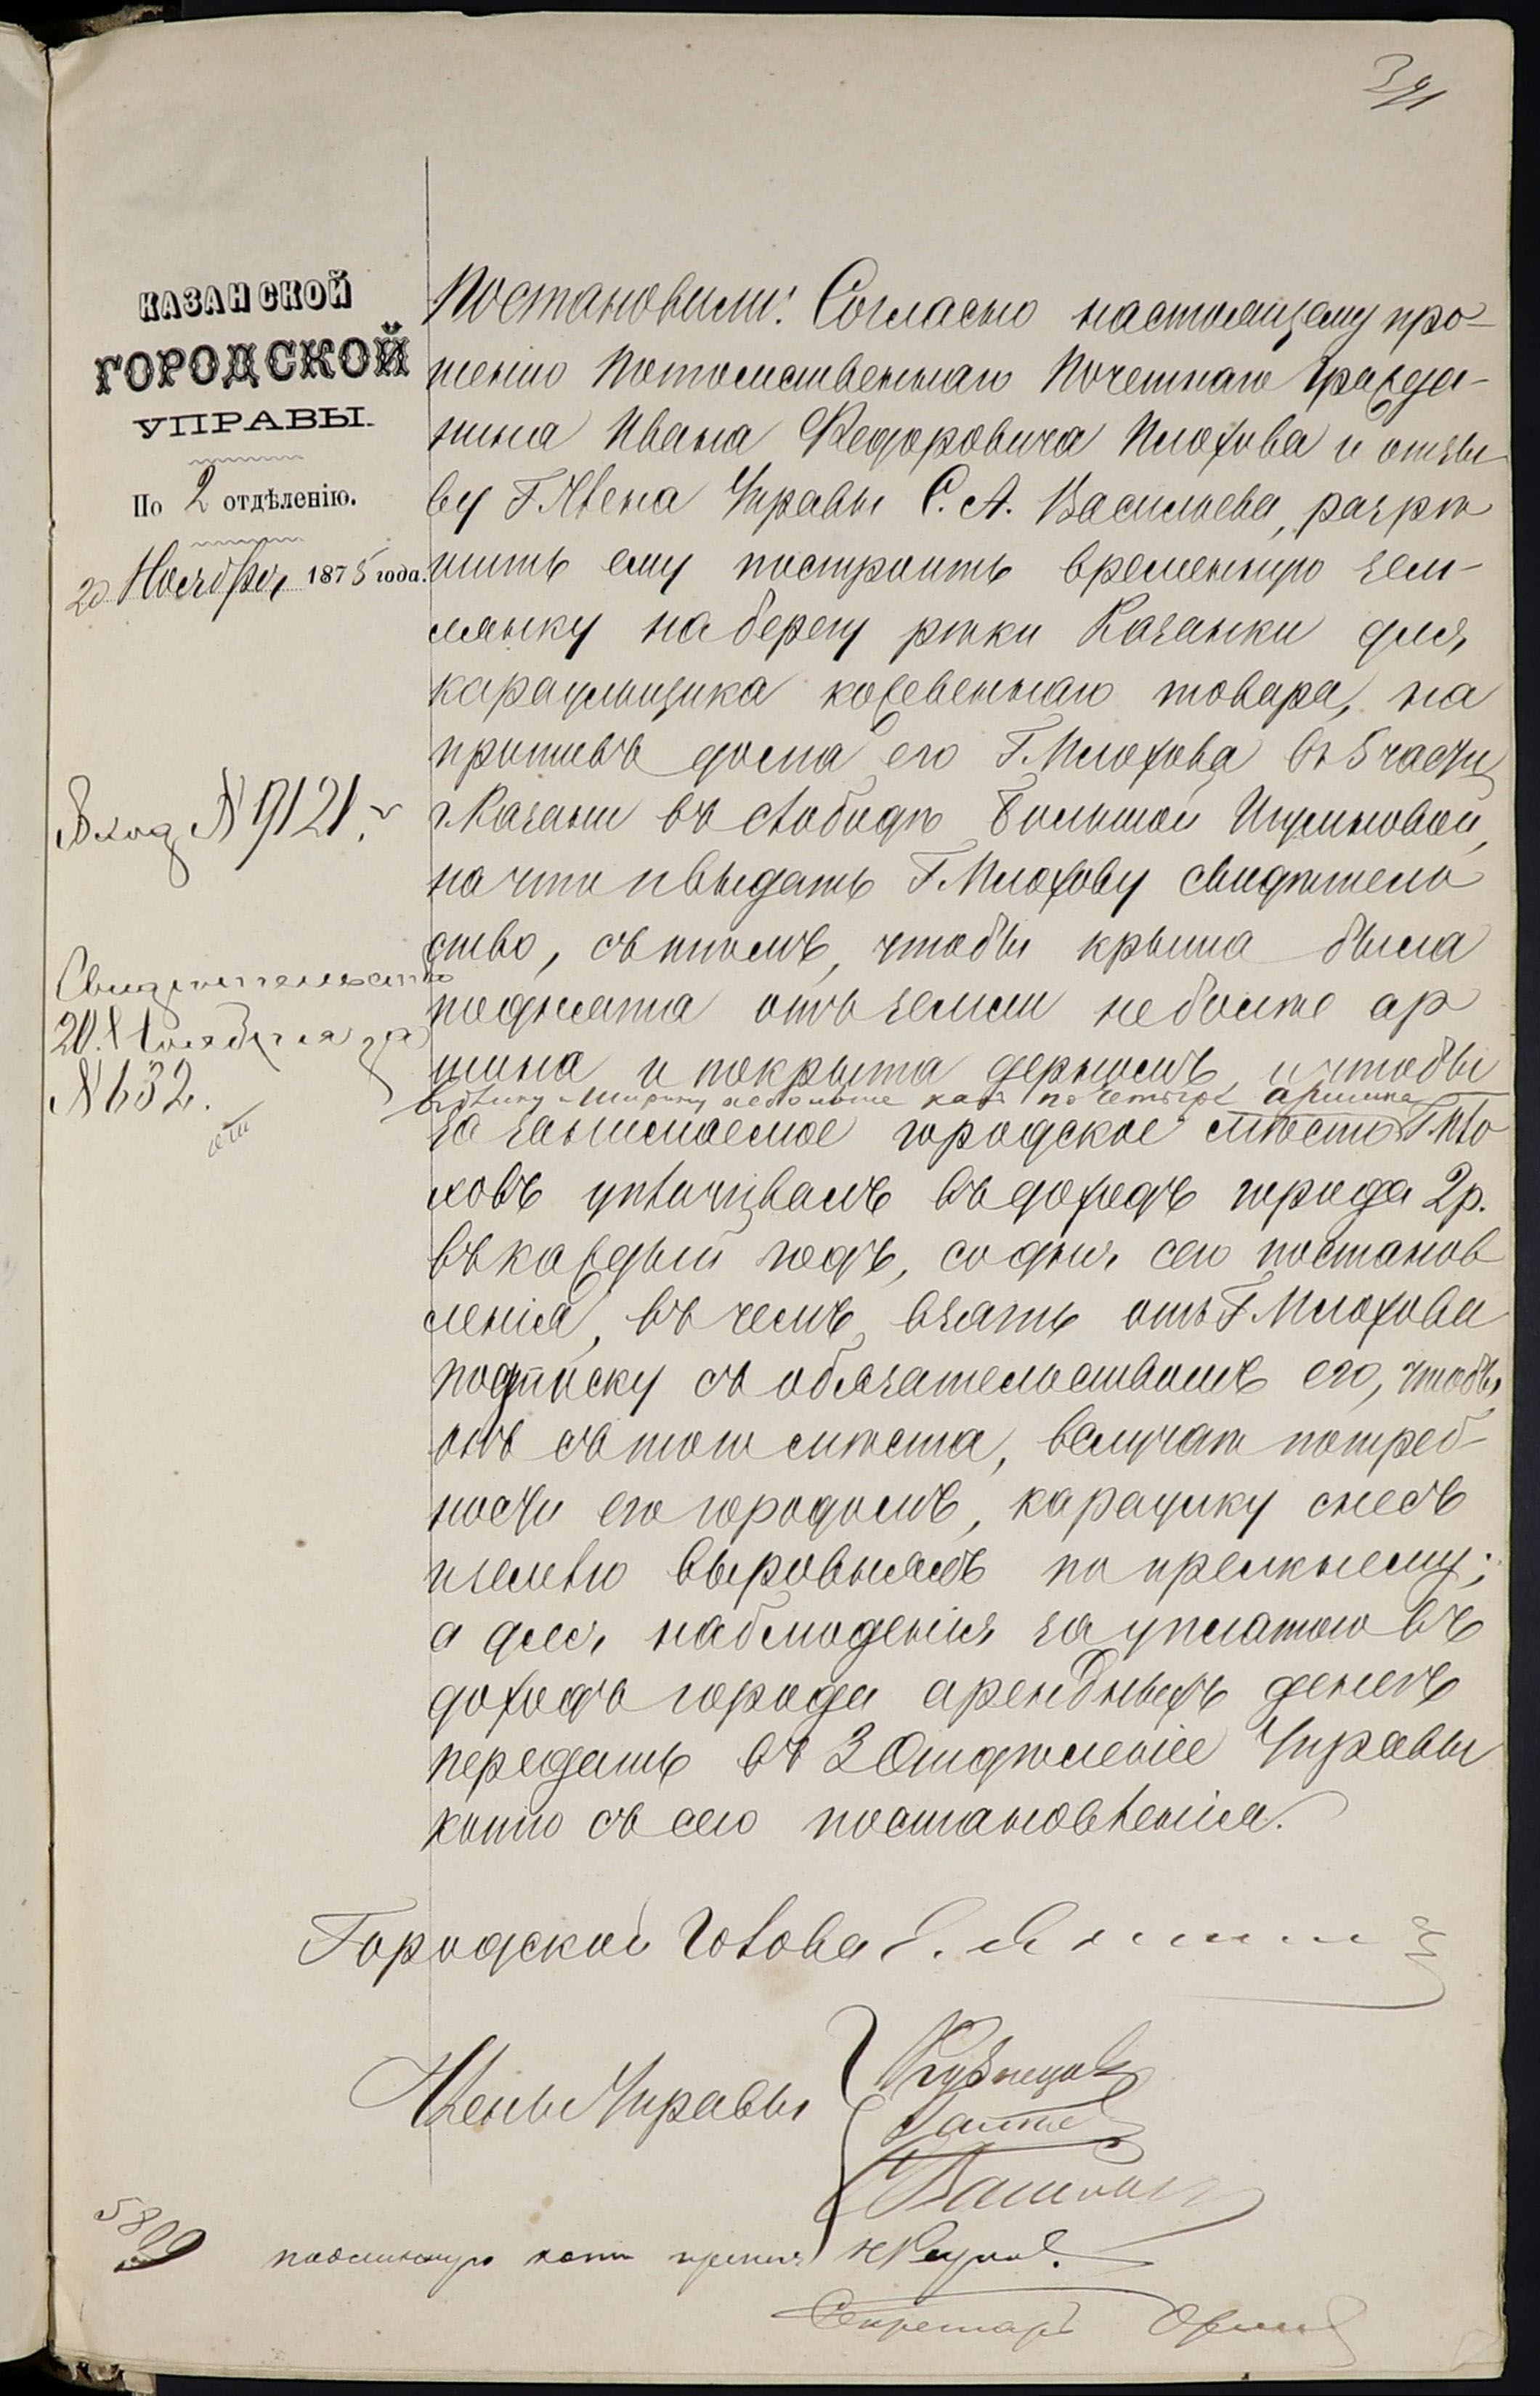 КАЗАНСКОЙ
ГОРОДСКОЙ
УПРАВЫ.
По 2 отдѣленію.
20 Ноября 1875 года.
Вход № 9121.
Свидѣтельство
20 Ноября за
№ 632.
Постановили: Согласно настоящему про-
шенію Потомственнаго Почетнаго Гражда-
нина Ивана Федоровича Плохова и отзы
ву Г. Члена Управы С. А. Васильева, разрѣ
шить ему построить временную зем-
лянку на берегу рѣки Казанки для
караульщика кожевеннаго товара, на
противъ дома его Г. Плохова въ 5 части
г. Казани въ слободѣ Большой Игумновой,
на что и выдать Г. Плохову свидѣтель
ство, съ тѣмъ, чтобы крыша была
поднята отъ земли не более ар
шина и покрыта дерномъ, и чтобы
въ длину и ширину не больше какъ по четыре аршина
за занимаемое городское мѣсто Г. Пло
ховъ уплачивалъ въ доходъ города 2 р.
въ каждый годъ, со дня сего постанов
ленія, въ чемъ взять отъ Г. Плохова
подписку съ обязательствомъ его, чтобы
онъ съ того мѣста, въ случаѣ потреб-
ности его городомъ, караулку снесъ
и землю выровнялъ по прежнему;
а для наблюденія за уплатою въ
доходъ города арендныхъ денегъ
передать въ 3 Отдѣленіе Управы
копію съ сего постановленія.
Городской Голова
Члены Управы
Кузнецов
подлинную копію принялъ
Секретарь
5899